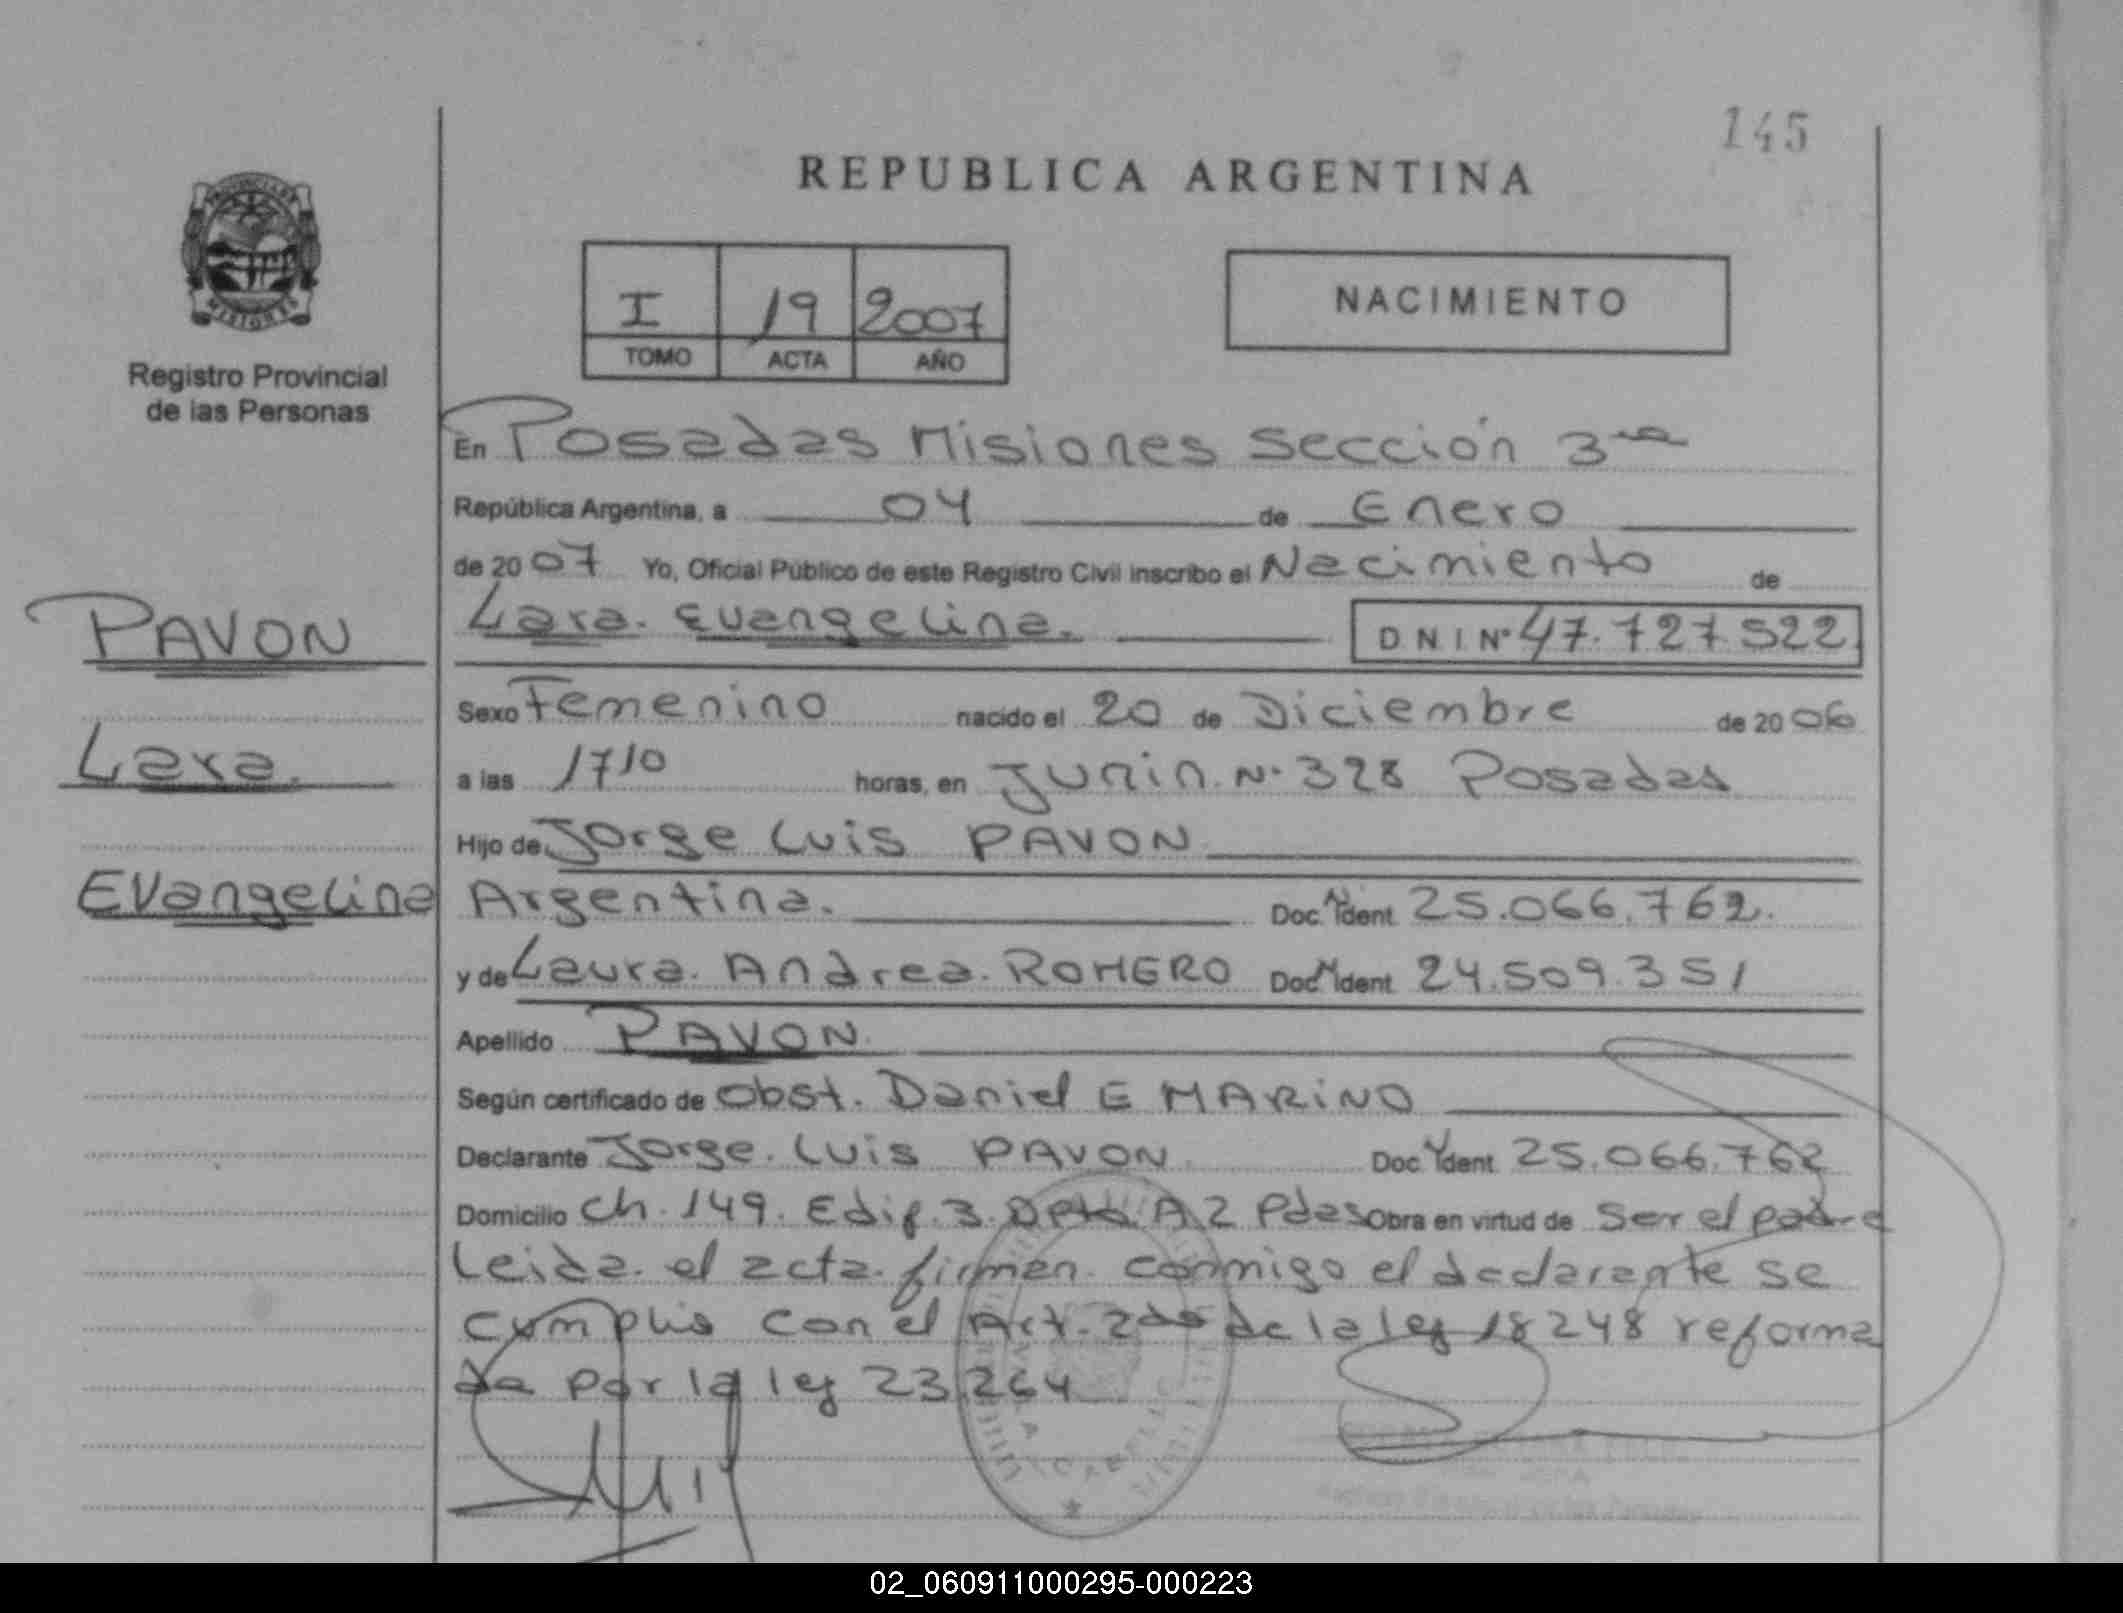 145
REPUBLICA ARGENTINA
I 19 2007
TOMO ACTA AÑO
NACIMIENTO
Registro Provincial
de las Personas
En Posadas Misiones Sección 3ra
República Argentina, a 04 de Enero
de 2007 Yo, Oficial Público de este Registro Civil inscribo el Nacimiento de
Lara. Evangelina. D.N.I. Nº 47.727.522
PAVON
Lara.
Evangelina
Sexo Femenino nacido el 20 de Diciembre de 2006
a las 1710 horas, en Junin. Nº 328 Posadas
Hijo de Jorge Luis PAVON
Argentina. Doc. N Ident 25.066.762.
y de Laura. Andrea. ROMERO Doc N Ident 24.509.351
Apellido PAVON.
Según certificado de Obst. Daniel E MARiNO
Declarante Jorge. Luis PAVON Doc Ident 25.066.762
Domicilio Ch. 149. Edif. 3. Dpto A2 Pdas Obra en virtud de ser el padre
Leida el acta. firman conmigo el declarante se
cumplio con el Art. 2do de la ley 18248 reforma
da por la ley 23.264
02_060911000295-000223